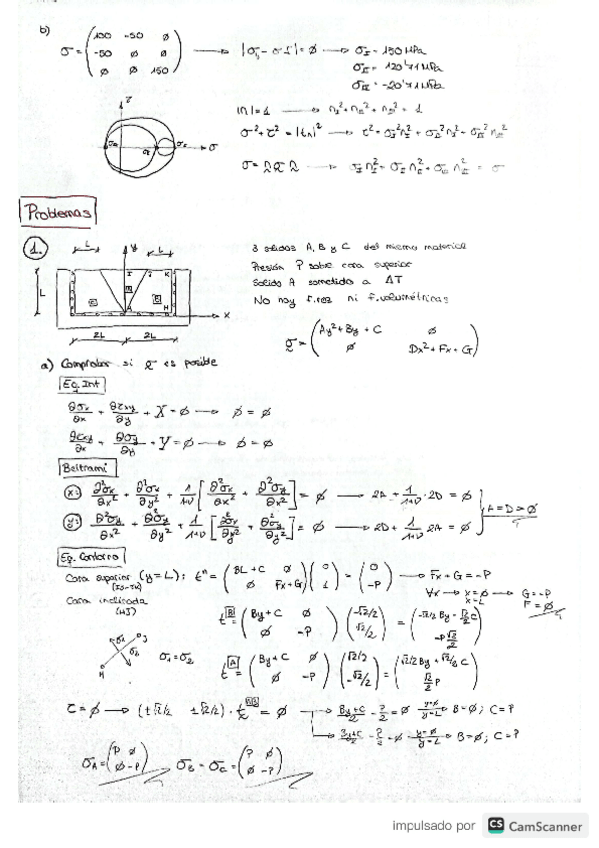 b)
σ = (100 -50 ∅
-50 ∅ ∅
∅ ∅ 150) → |σ - σI| = ∅ → σI = 150 MPa
σII = 120'71 MPa
σIII = -20'71 MPa
|n| = 1 → nI² + nII² + nIII² = 1
σ² + τ² = |tn|² → τ² = σI²nI² + σII²nII² - σIII²nIII²
σ = n σ n → σI nI² + σII nII² + σIII nIII² = σ
Problemas
1.
3 sólidos A, B y C del mismo material
Presión P sobre cara superior
Sólido A sometido a ΔT
No hay f. roz ni f. volumétricas
L L y
L x
2L 2L
σ = (Ay² + By + C ∅
∅ Dx² + Fx + G)
a) Comprobar si σ es posible
Eq. Int
∂σx/∂x + ∂τxy/∂y + X = ∅ → ∅ = ∅
∂τxy/∂x + ∂σy/∂y + Y = ∅ → ∅ = ∅
Beltrami
x: ∂²σx/∂x² + ∂²σx/∂y² + 1/1+ν [∂²σx/∂x² + ∂²σy/∂x²] = ∅ → 2A + 1/1+ν · 2D = ∅
A = D = ∅
y: ∂²σy/∂x² + ∂²σy/∂y² + 1/1+ν [∂²σx/∂y² + ∂²σy/∂y²] = ∅ → 2D + 1/1+ν 2A = ∅
Eq. Contorno
Cara superior (y = L): tⁿ = (BL + C ∅
∅ Fx + G) (0
1) = (0
-P) → Fx + G = -P
∀x → x = ∅ → G = -P
x = L F = ∅
Cara inclinada
(HJ)
t B = (By + C ∅
∅ -P) (-√2/2
√2/2) = (-√2/2 By - √2/2 C
-P √2/2)
σ1 = σ2
t A = (By + C ∅
∅ -P) (√2/2
-√2/2) = (√2/2 By + √2/2 C
√2/2 P)
τ = ∅ → (±√2/2 ±√2/2) · t = ∅ → By + C/2 - P/2 = ∅ → B = ∅; C = P
→ By + C/2 - P/2 = ∅ → B = ∅; C = P
σA = (P ∅
∅ -P) σB = σC = (P ∅
∅ -P)
impulsado por CS CamScanner